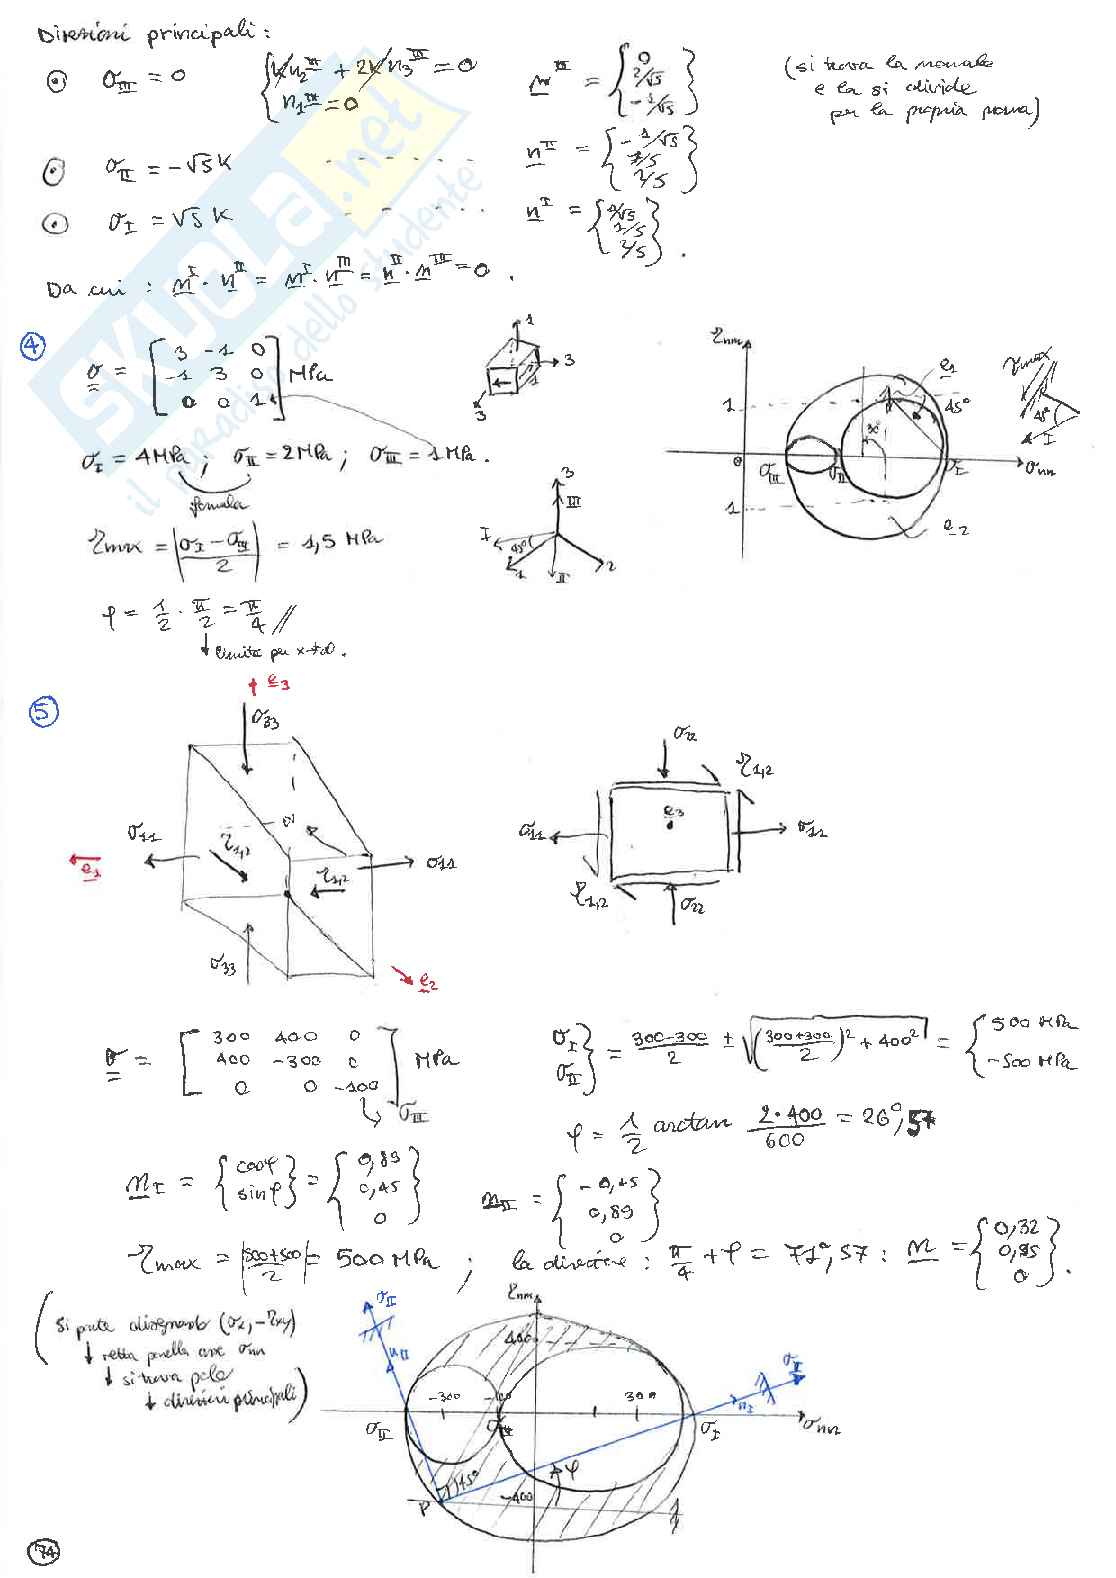 Direzioni principali:
σ_III = 0   { k n₂^III + 2k n₃^III = 0   n^III = { 0   (si trova la normale
n₁^III = 0   2/√5   e la si divide
-1/√5 }   per la propria norma)
σ_II = -√5 k   - - - - - -   n^II = { -1/√5
1/5
2/5 }
σ_I = √5 k   - - - - - -   n^I = {
1/5
2/5 } .
Da cui : n^I · n^II = n^I · n^III = n^II · n^III = 0 .
SKUOLA.net
il paradiso dello studente
④
σ = [ 3 -1 0
-1 3 0
0 0 1 ] MPa
1
3
1
3
σ_I = 4 MPa ; σ_II = 2 MPa ; σ_III = 1 MPa .
formula
τmax = |σ_I - σ_III / 2| = 1,5 MPa
φ = 1/2 · π/2 = π/4 //
↓ limite per x→∞ .
3
III
I
45°
1
II
2
τnm
1
e1
45°
90°
0
σ_III
σ_II
σ_I
σnn
1
e2
τmax
45°
I
⑤
e3
σ33
σ11
τ1,2
τ1,2
σ11
e1
σ33
e2
σ22
τ1,2
e3
σ11
σ11
τ1,2
σ22
σ = [ 300 400 0
400 -300 0
0 0 -100 ] MPa
σ_III
σ_I
σ_II } = 300-300 / 2 ± √( (300+300 / 2)² + 400² ) = { 500 MPa
-500 MPa
φ = 1/2 arctan 2·400 / 600 = 26°,57
n_I = { cosφ
sinφ } = { 0,89
0,45
0 }
n_II = { -0,45
0,89
0 }
τmax = |500+500 / 2| = 500 MPa ; la direzione : π/4 + φ = 71°,57 : n = { 0,32
0,95
0 } .
(Si parte disegnando (σx, -τxy)
↓ retta parallela asse σnn
↓ si trova polo
↓ direzioni principali)
σ_II
τnm
n_II
400
-300
-100
300
σ_II
σ_III
σ_I
n_I
σ_I
σnn
45°
φ
P
-400
74